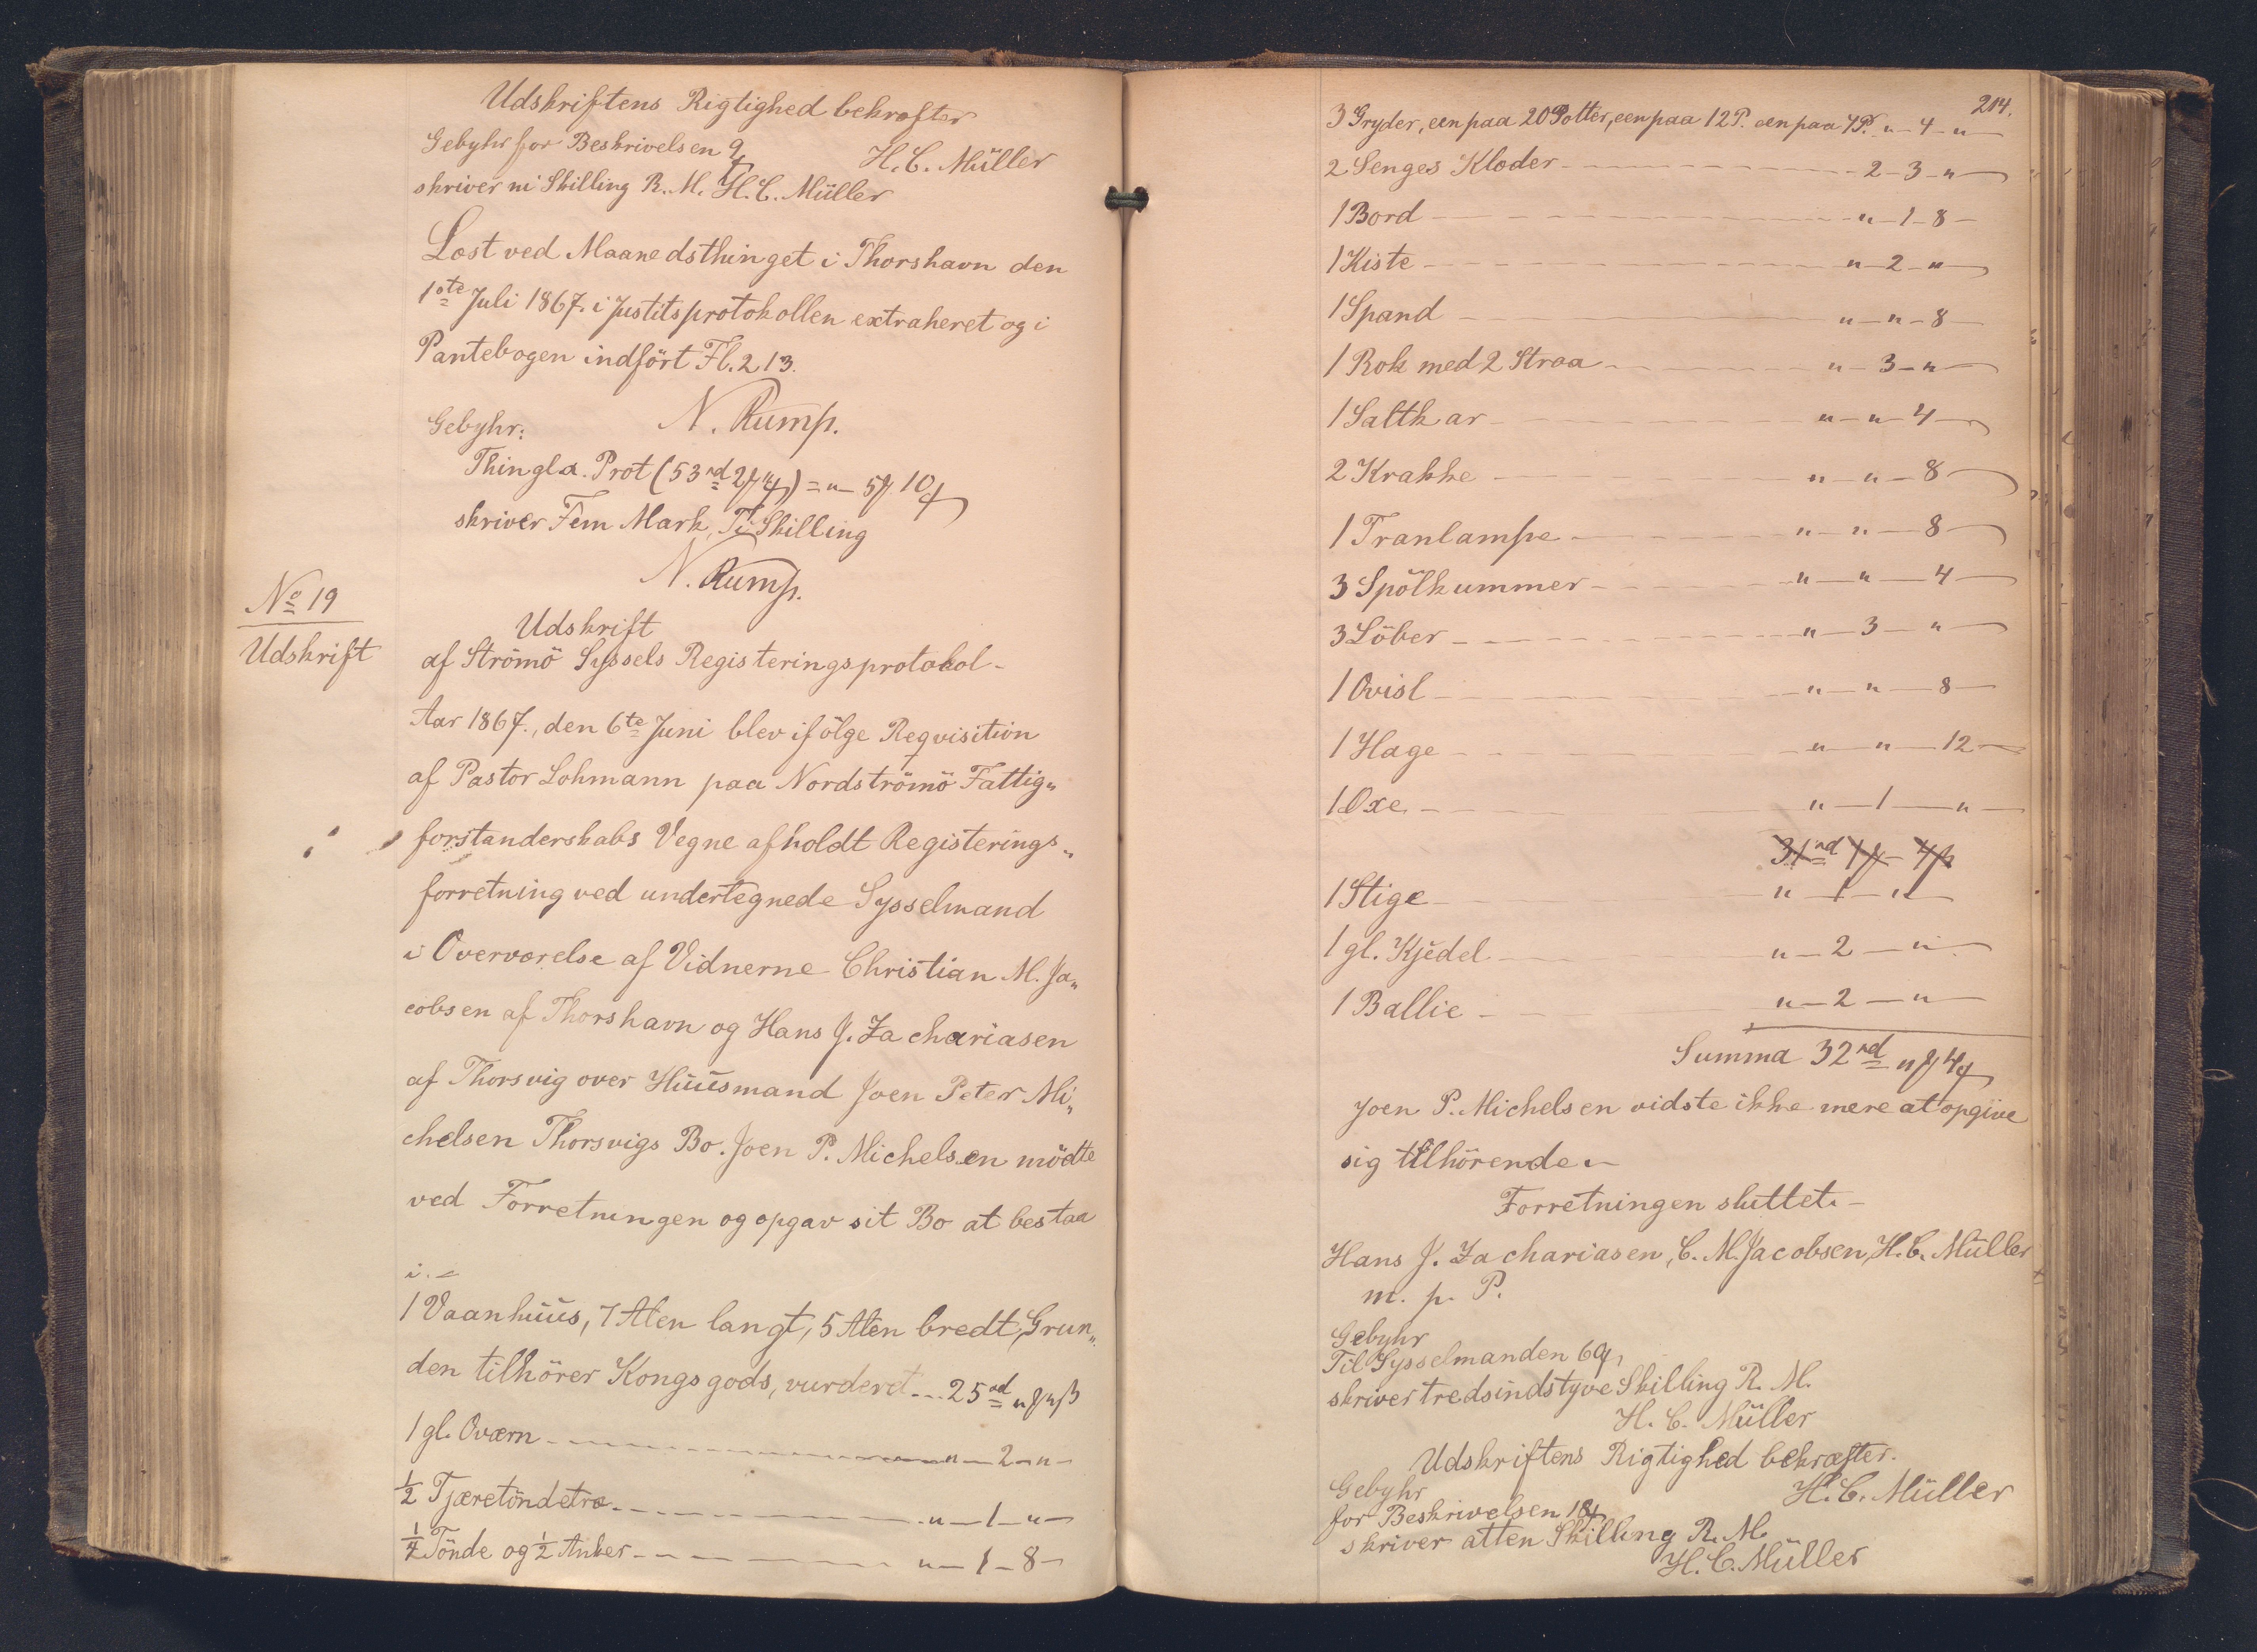 Udskriftens Rigtighed bekræfter
Gebyhr for Beskrivelsen 9ß
H. C. Müller
skriver ni Skilling R. M. H. C. Müller
Læst ved Maanedsthinget i Thorshavn den
1ste Juli 1867. i Justitsprotokollen extraheret og i
Pantebogen indført Fl. 213.
N. Rump.
Gebyhr:
Thingla. Prot (53rd 2 ) = „ 5 10ß
skriver Fem Mark, Ti Skilling
N. Rump.
No 19
Udskrift
Udskrift
af Strömö Syssels Registeringsprotokol-
Aar 1867., den 6te Juni blev ifölge Reqvisition
af Pastor Lohmann paa Nordströmö Fattig„
forstanderskabs Vegne afholdt Registerings„
forretning ved undertegnede Sysselmand
i Overværelse af Vidnerne Christian M. Ja„
cobsen af Thorshavn og Hans J. Zachariasen
af Thorsvig over Huusmand Joen Peter Mi„
chelsen Thorsvigs Bo. Joen P. Michelsen mödte
ved Forretningen og opgav sit Bo at bestaa
i. -
1 Vaanhuus, 7 Alen langt, 5 Alen bredt, Grun„
den tilhörer Kongsgods, vurderet - 25rd „ „ß
1 gl. Oværn - „ - 2 - „
1/2 Tjæretöndetræ - „ - 1 - „
1/4 Tönde og 1/2 Anker - „ - 1 - 8
214.
3 Gryder, een paa 20 Potter, een paa 12 P. een paa 4 P. „ - 4 - „
2 Senges Klæder - 2 - 3 - „
1 Bord - „ - 1 - 8
1 Kiste - „ - 2 - „
1 Spand - „ - „ - 8
1 Rok med 2 Straa - „ - 3 - „
1 Saltkar - „ - „ - 4
2 Krakke - „ - „ - 8
1 Tranlampe - „ - „ - 8
3 Spölkummer - „ - „ - 4
3 Löber - „ - 3 - „
1 Qvisl - „ - „ - 8
1 Hage - „ - „ - 12
1 Oxe - „ - 1 - „
31rd 1 - 4ß
1 Stige - „ - 1 - „
1 gl. Kjedel - „ - 2 - „
1 Ballie - „ - 2 - „
Summa 32rd „ 4ß
Joen P. Michelsen vidste ikke mere at opgive
sig tilhörende. -
Forretningen sluttet. -
Hans J. Zachariasen, C. M. Jacobsen, H. C. Müller
m. p. P.
Gebyhr
Til Sysselmanden 60ß,
skriver tredsindstyve Skilling R. M.
H. C. Müller
Udskriftens Rigtighed bekræfter.
H. C. Müller
Gebyhr
for Beskrivelsen 18ß
skriver atten Skilling R. M.
H. C. Müller